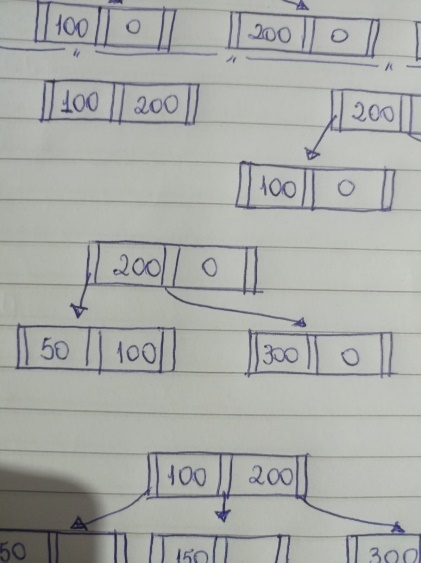 100 0 200 0
100 200 200
100 0
200 0
50 100 300 0
100 200
50 150 300